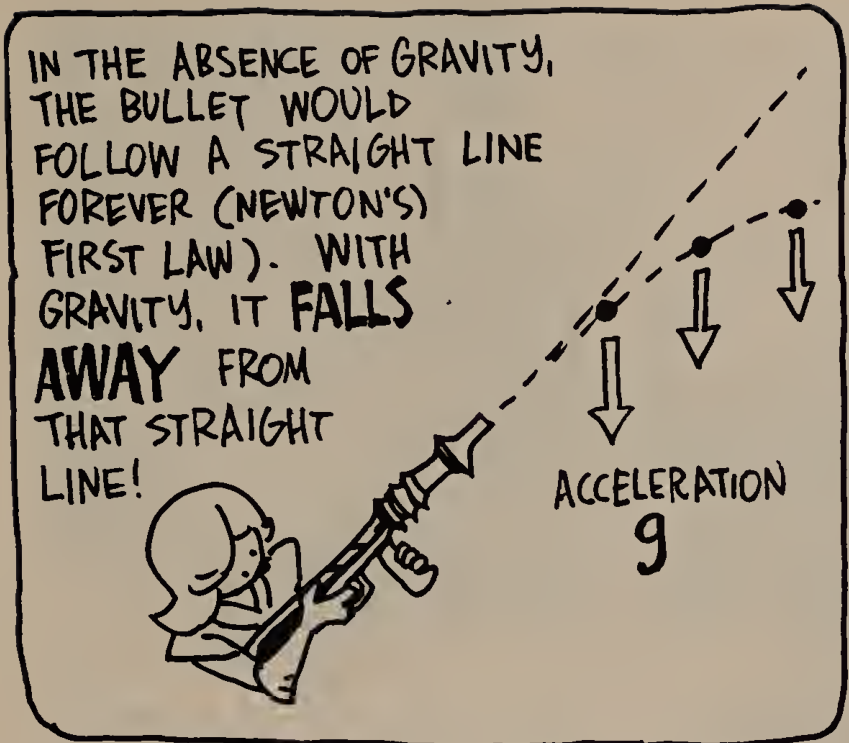 IN THE ABSENCE OF GRAVITY,
THE BULLET WOULD
FOLLOW A STRAIGHT LINE
FOREVER (NEWTON'S)
FIRST LAW). WITH
GRAVITY, IT FALLS
AWAY FROM
THAT STRAIGHT
LINE!
ACCELERATION
g